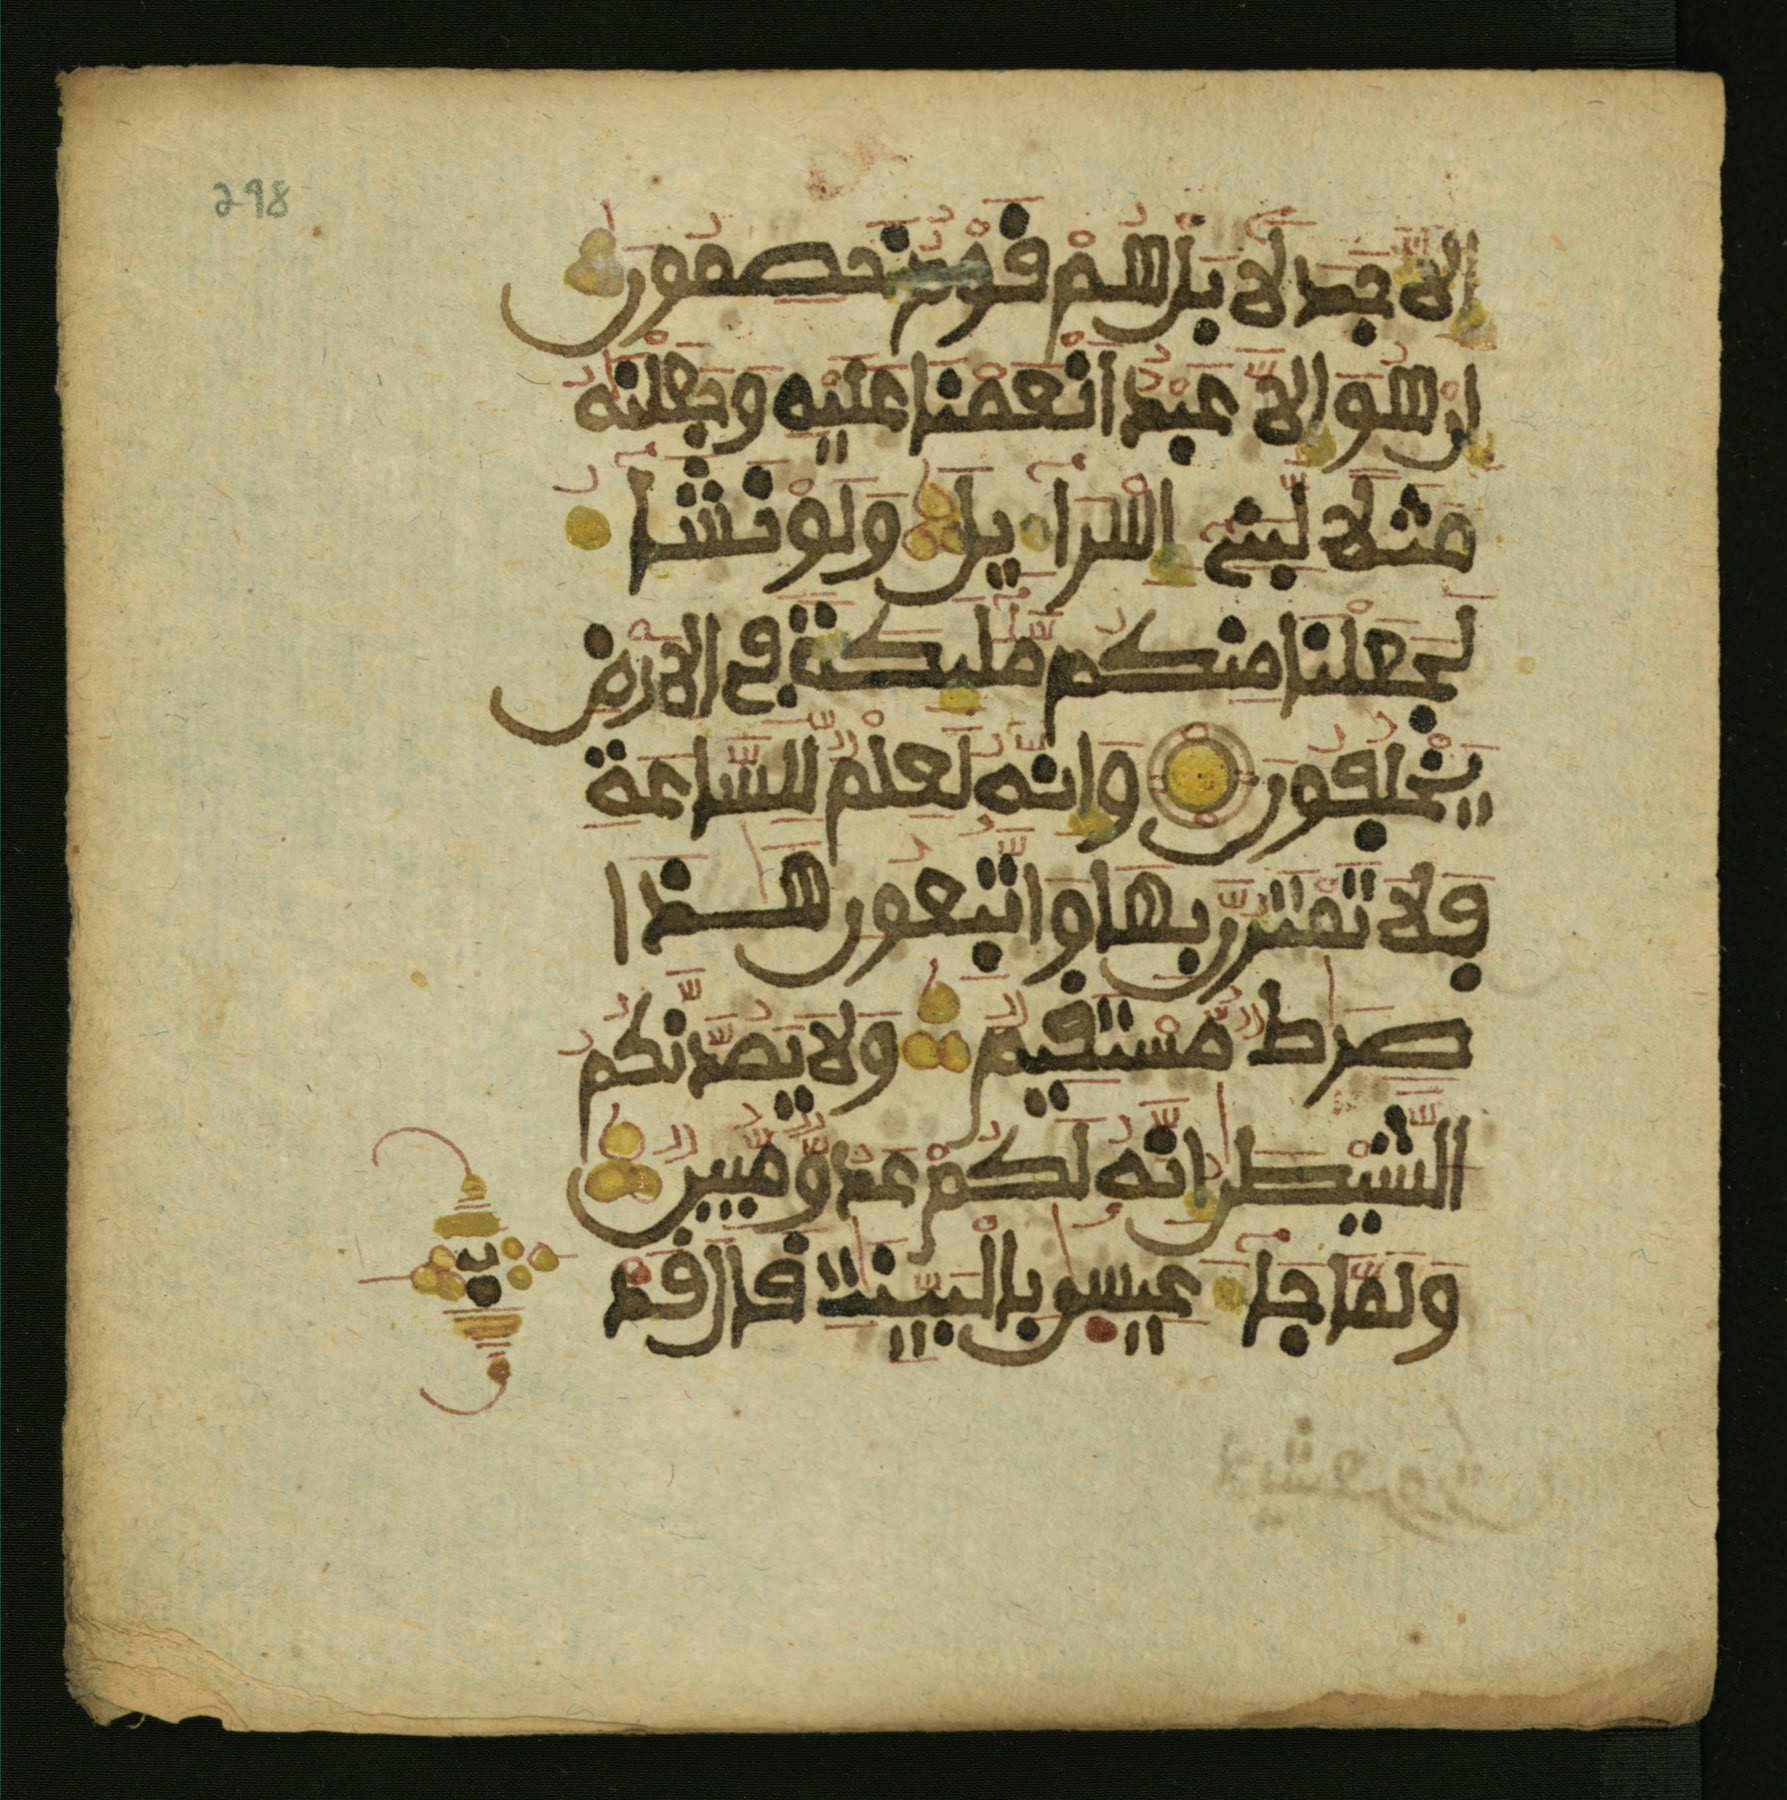 298
اِلَّا جَدَلًا بَلْ هُمْ قَوْمٌ خَصِمُونَ
اِنْ هُوَ اِلَّا عَبْدٌ اَنْعَمْنَا عَلَيْهِ وَجَعَلْنَهُ
مَثَلًا لِّبَنِے إِسْرَآءِيلَ وَلَوْ نَشَآءُ
لَجَعَلْنَا مِنكُم مَّلَٰٓئِكَةً فِے الَارْضِ
يَخْلُفُونَ وَإِنَّهُۥ لَعِلْمٌ لِّلسَّاعَةِ
فَلَا تَمْتَرُنَّ بِهَا وَاتَّبِعُونِ هَٰذَا
صِرَٰطٌ مُّسْتَقِيمٌ وَلَا يَصُدَّنَّكُمُ
الشَّيْطَٰنُ إِنَّهُۥ لَكُمْ عَدُوٌّ مُّبِينٌ
وَلَمَّا جَآءَ عِيسٰى بِالْبَيِّنَٰتِ قَالَ قَد